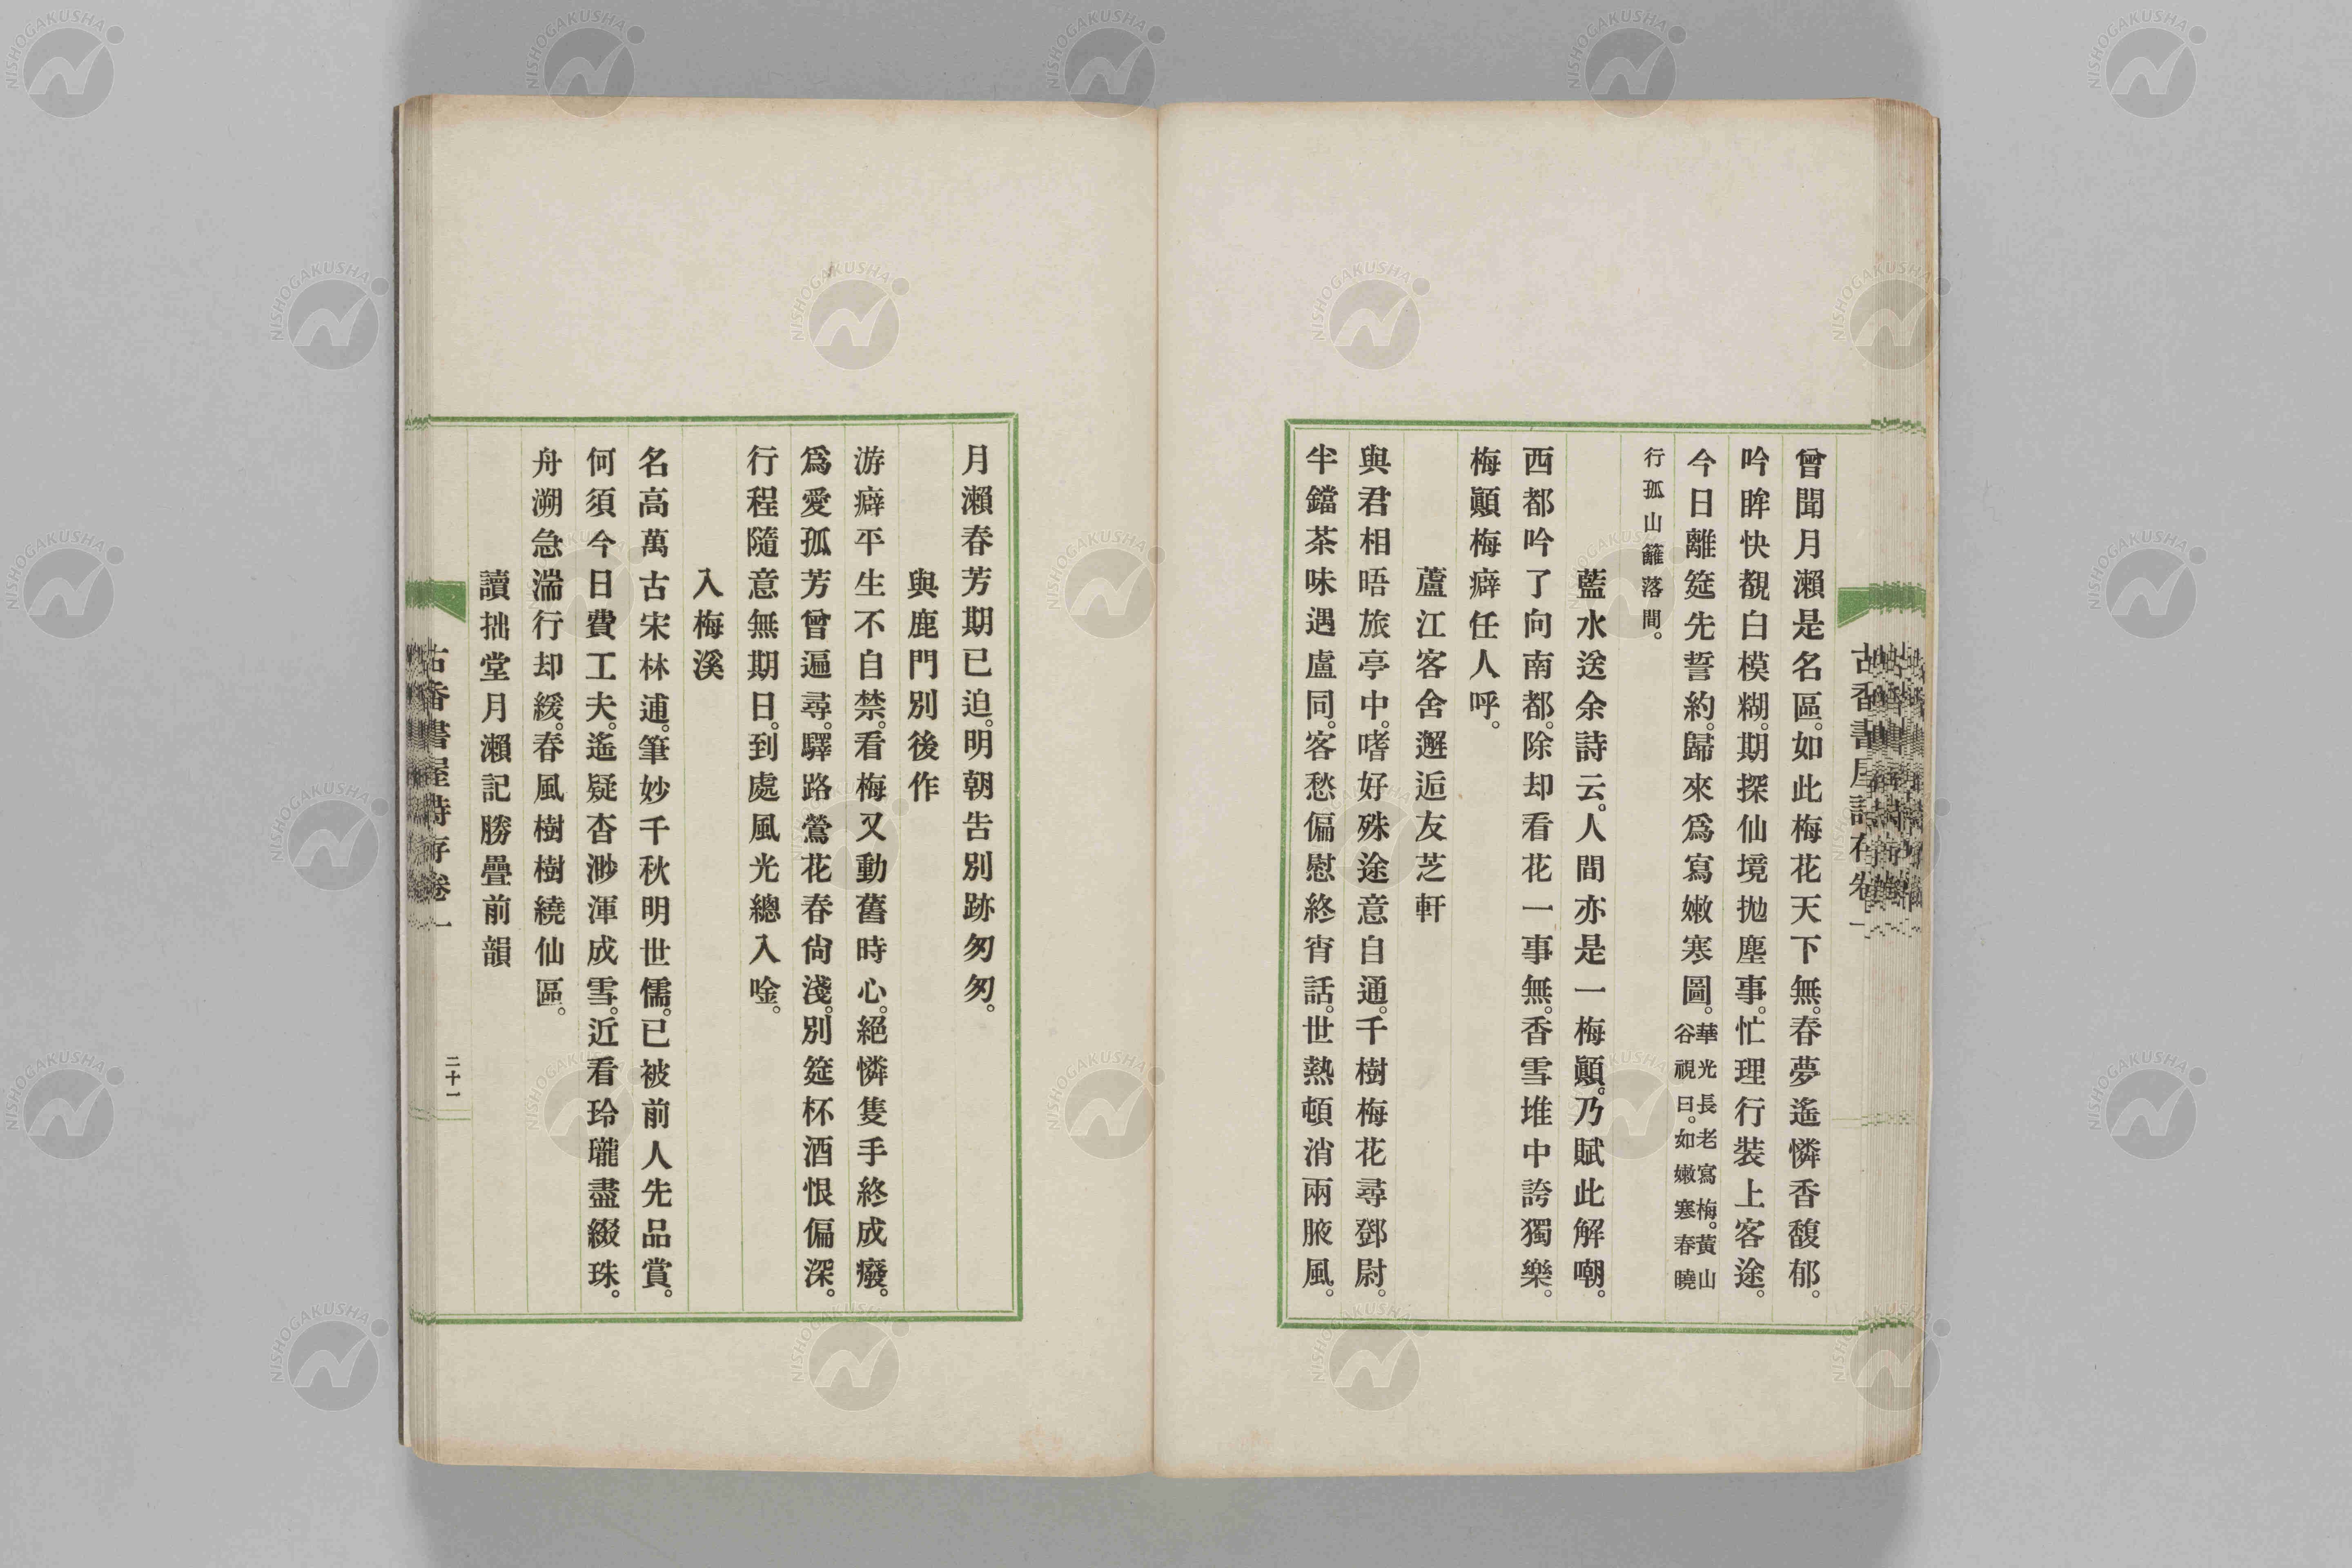 曾聞月瀨是名區。如此梅花天下無。春夢遙憐香馥郁。
吟眸快覩白模糊。期探仙境拋塵事。忙理行裝上客途。
今日離筵先誓約。歸來爲寫嫩寒圖。華光長老寫梅。黃山
谷視曰。如嫩寒春曉
行孤山籬落間。
藍水送余詩云。人間亦是一梅顚。乃賦此解嘲。
西都吟了向南都。除却看花一事無。香雪堆中誇獨樂。
梅顚梅癖任人呼。
蘆江客舍邂逅友芝軒
與君相晤旅亭中。嗜好殊途意自通。千樹梅花尋鄧尉。
半鐺茶味遇盧同。客愁偏慰終宵話。世熱頓消兩腋風。
月瀨春芳期已迫。明朝告別跡匆匆。
與鹿門別後作
游癖平生不自禁。看梅又動舊時心。絕憐隻手終成癈。
爲愛孤芳曾遍尋。驛路鶯花春尙淺。別筵杯酒恨偏深。
行程隨意無期日。到處風光總入唫。
入梅溪
名高萬古宋林逋。筆妙千秋明世儒。已被前人先品賞。
何須今日費工夫。遙疑杳渺渾成雪。近看玲瓏盡綴珠。
舟溯急湍行却緩。春風樹樹繞仙區。
讀拙堂月瀨記勝疊前韻
古香書屋詩存卷一
二十一
NISHOGAKUSHA